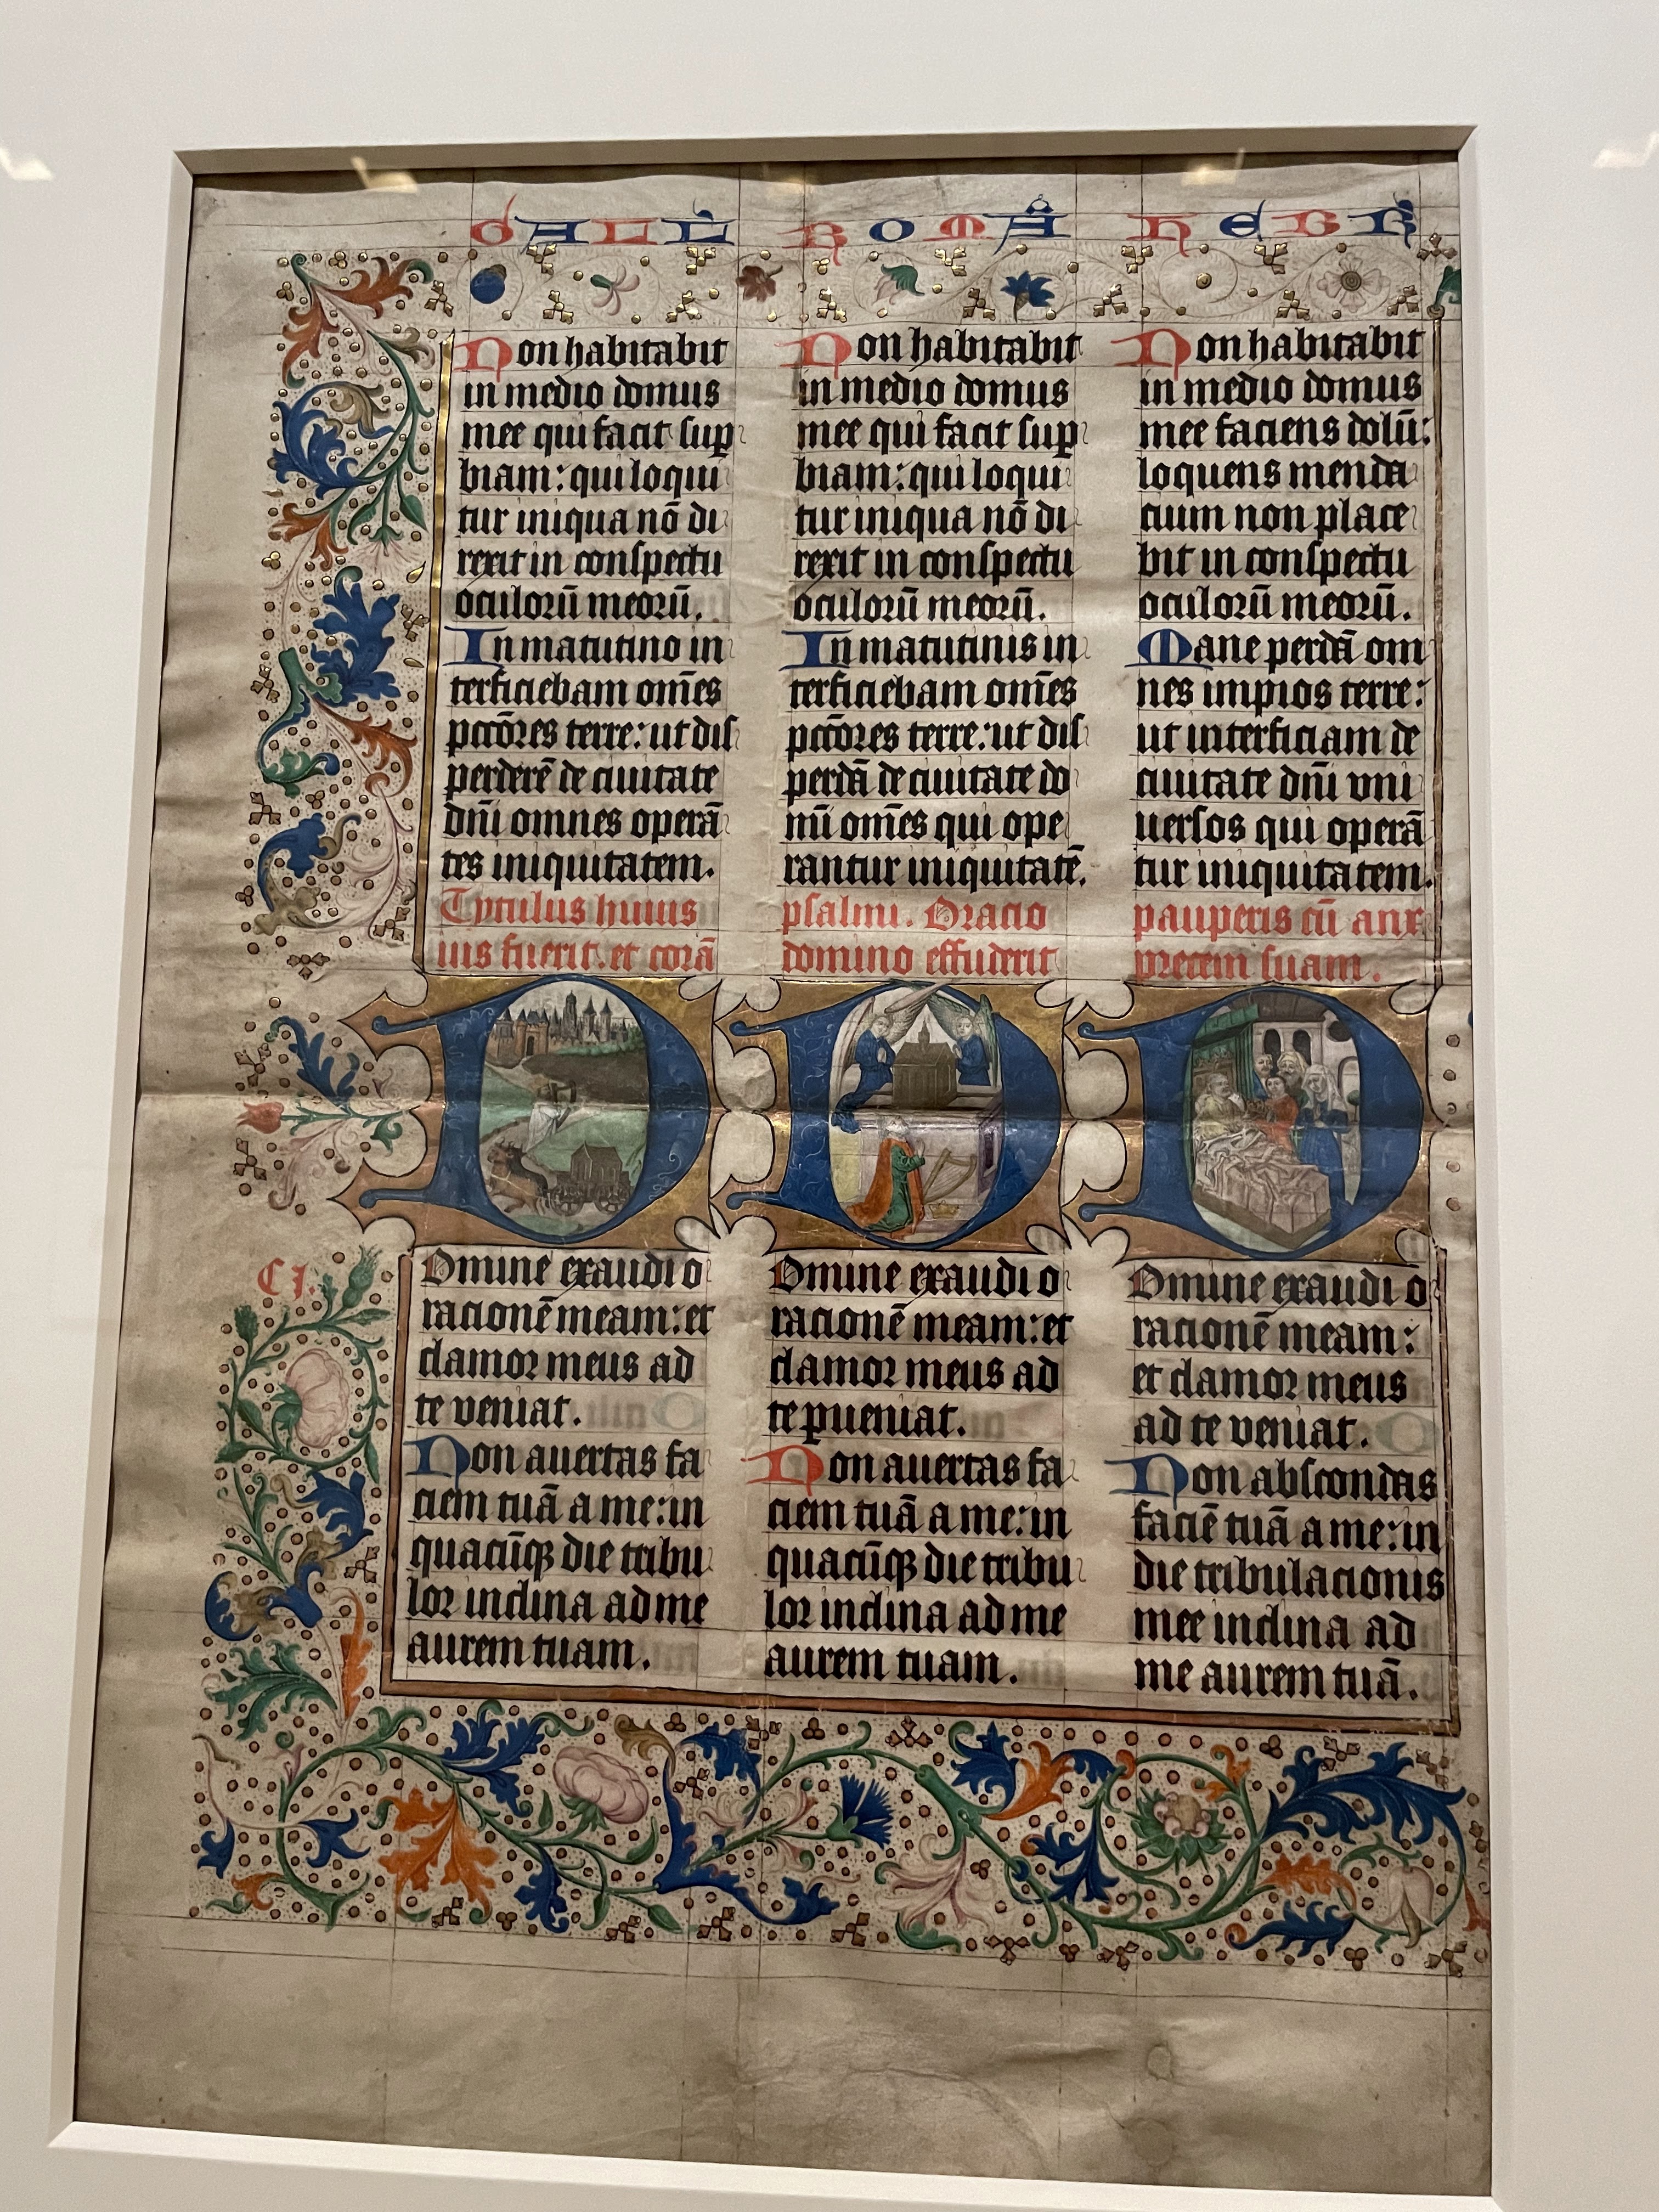 GALL ROMA HEBR
Non habitabit
in medio domus
mee qui facit sup
biam: qui loqui
tur iniqua nō di
rexit in conspectu
oculorū meorū.
In matutino in
terficiebam om̄es
pcc̄ores terre: ut dis
perderē de ciuitate
dn̄i omnes operā
tes iniquitatem.
Non habitabit
in medio domus
mee qui facit sup
biam: qui loqui
tur iniqua nō di
rexit in conspectu
oculorū meorū.
In matutinis in
terficiebam om̄es
pcc̄ores terre: ut dis
perdā de ciuitate do
mī om̄es qui ope
rantur iniquitatē.
Non habitabit
in medio domus
mee faciens dolū:
loquens menda
cium non place
bit in conspectu
oculorū meorū.
Mane perdā om
nes impios terre:
ut interficiam de
ciuitate dn̄i vni
uersos qui operā
tur iniquitatem.
Tytulus huius psalmi. Oracio pauperis cū anx
ius fuerit. et corā domino effuderit precem suam.
CI.
Domine exaudi o
racionē meam: et
clamor meus ad
te veniat.
Non auertas fa
ciem tuā a me: in
quacūqꝫ die tribu
lor inclina ad me
aurem tuam.
Domine exaudi o
racionē meam: et
clamor meus ad
te pueniat.
Non auertas fa
ciem tuā a me: in
quacūqꝫ die tribu
lor inclina ad me
aurem tuam.
Domine exaudi o
racionē meam:
et clamor meus
ad te veniat.
Non abscondas
faciē tuā a me: in
die tribulacionis
mee inclina ad
me aurem tuā.